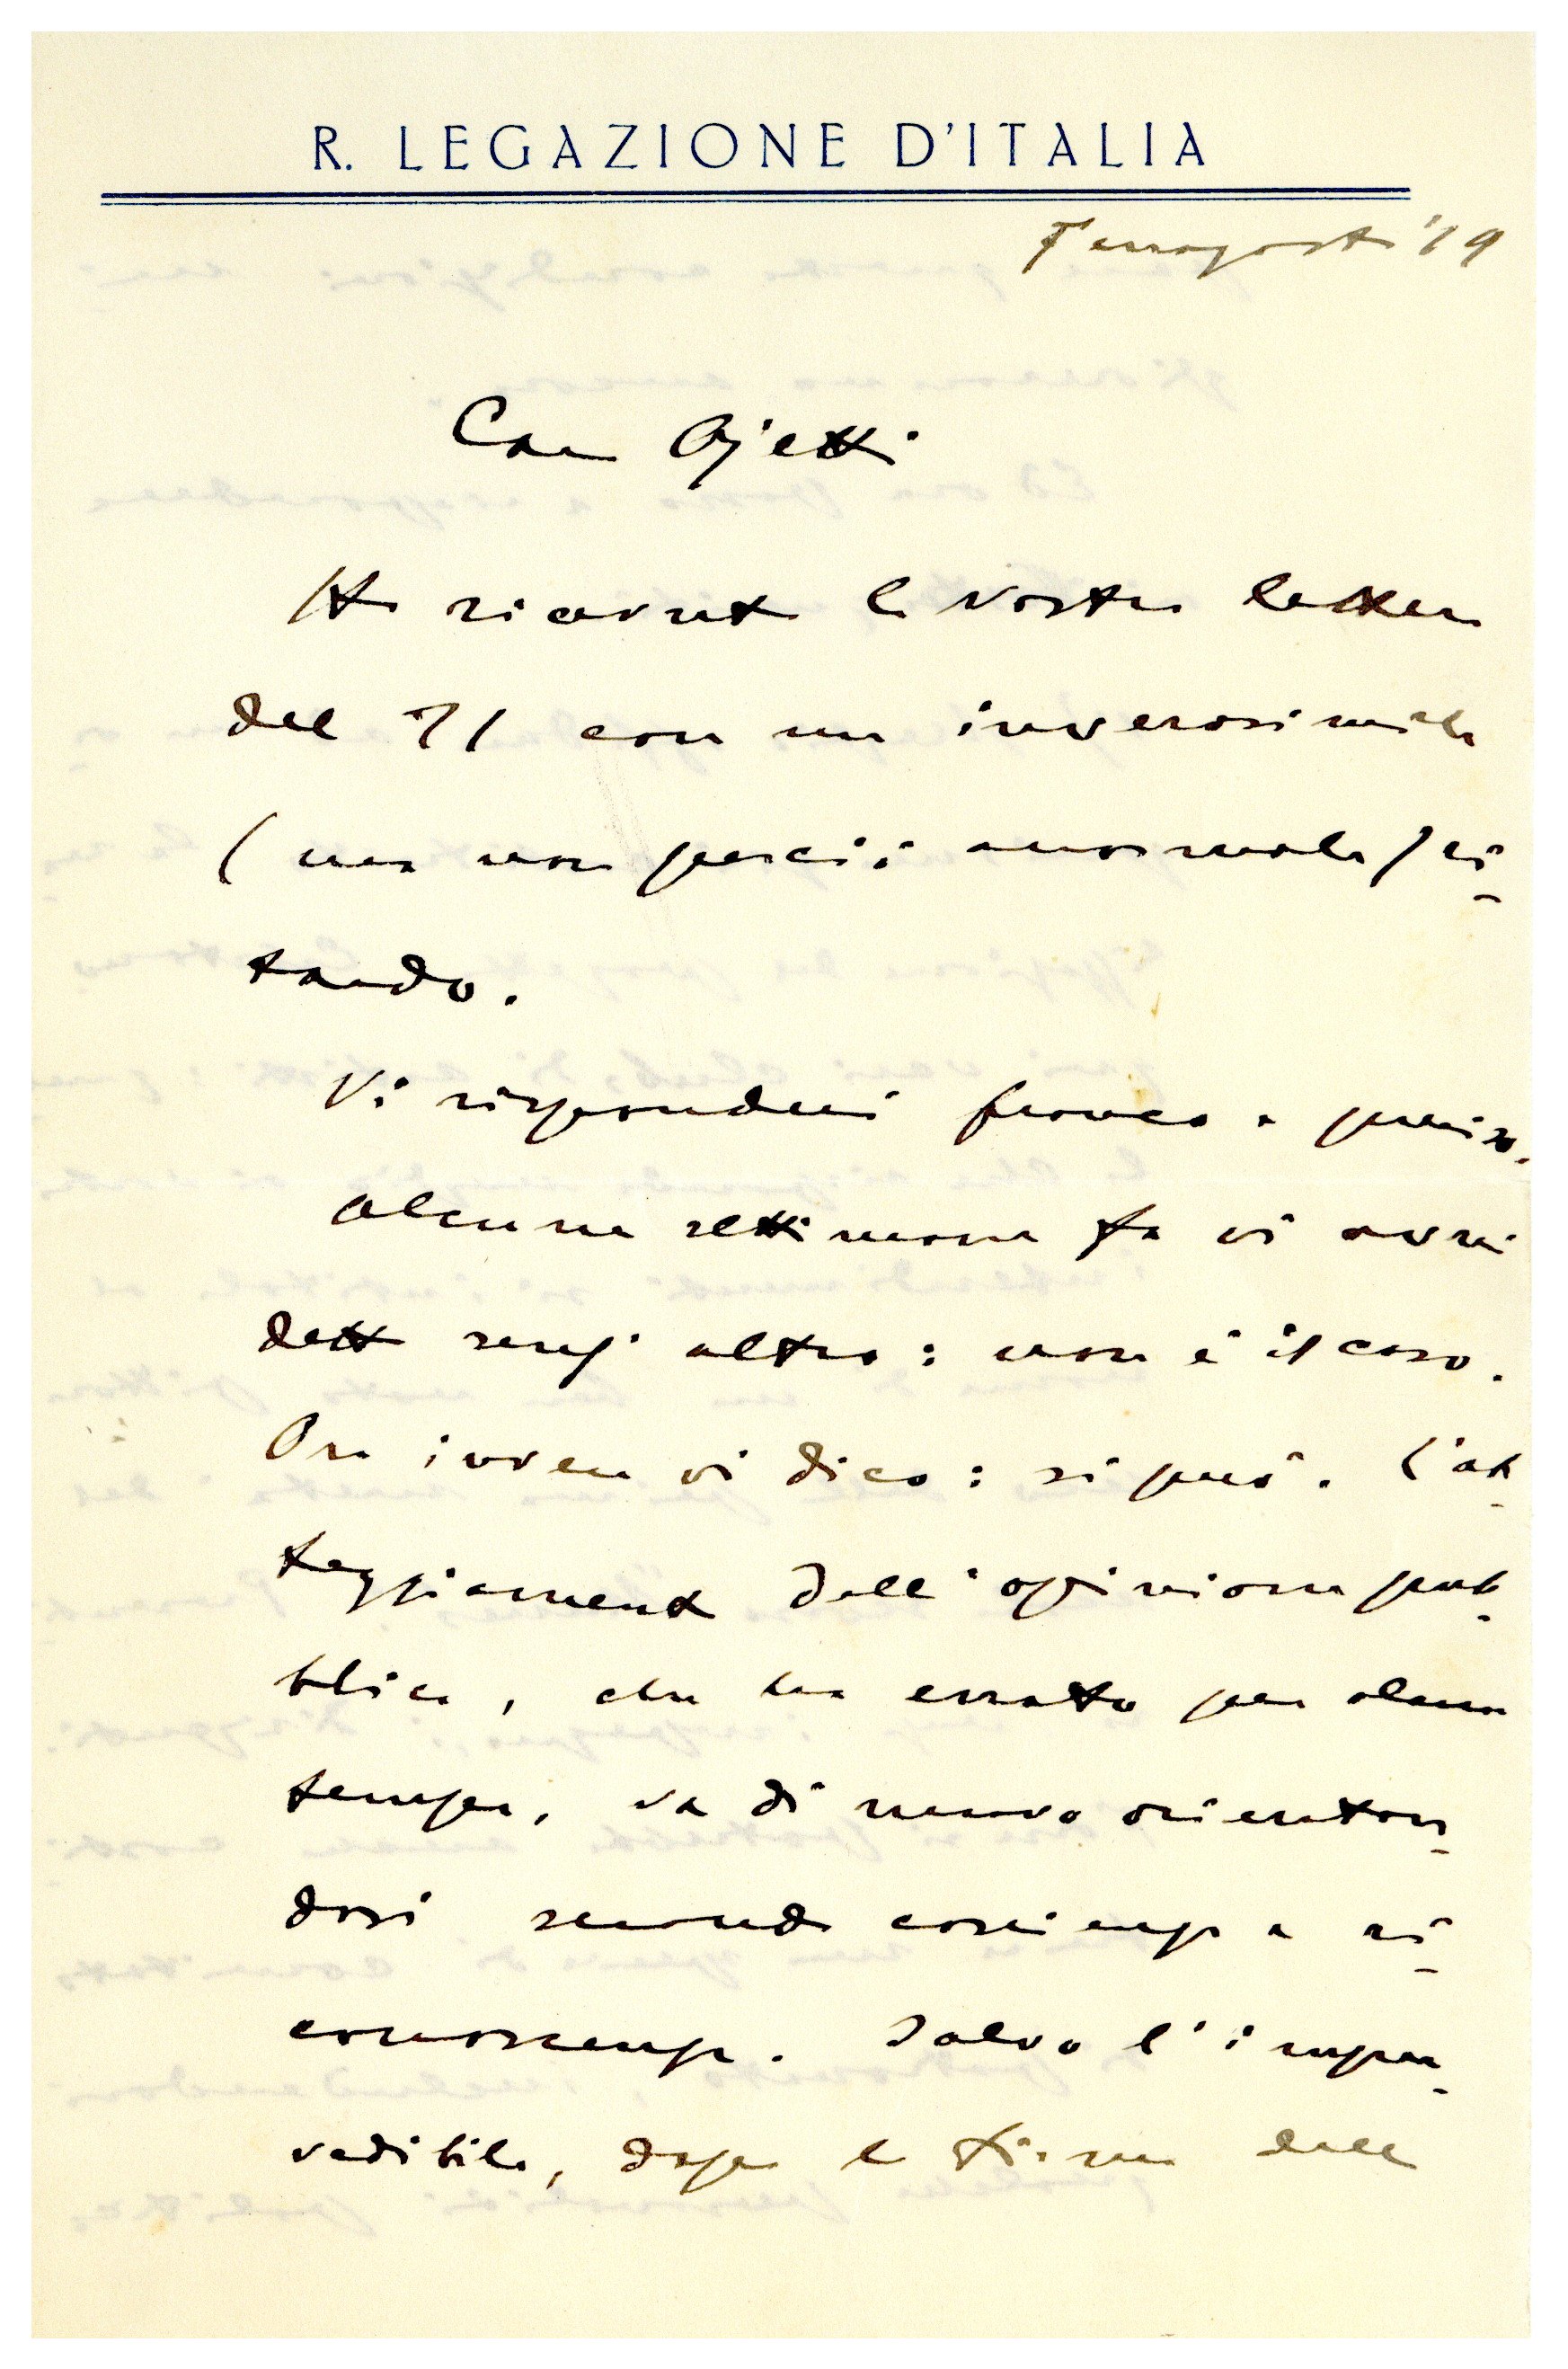 R. LEGAZIONE D'ITALIA
Ferragosto '19
Caro Ojetti
Ho ricevuto la vostra lettera
del 71 con un inverosimile
(ma non perciò anormale) ri-
tardo.
Vi risponderei franco e preciso.
Alcune settimane fa vi avrei
detto senz'altro: non è il caso.
Ora invece vi dico: si può. L'at-
teggiamento dell'opinione pub-
blica, che ha errato per alcun
tempo, va di nuovo orientan-
dosi secondo coscienza e ri-
conoscenza. Salvo l'impre-
vedibile, dopo la firma della